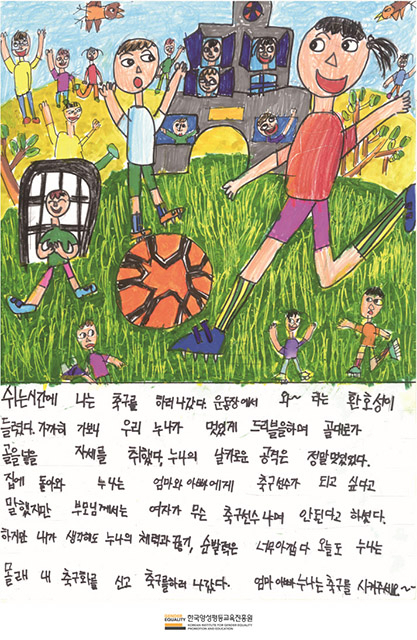 쉬는시간에 나는 축구를 하러 나갔다. 운동장에서 와~ 라는 환호성이
들렸다. 가까이 가보니 우리 누나가 멋있게 드리블을하며 골대로가
골을 넣는 자세를 취했다, 누나의 날카로운 공격은 정말 멋있었다.
집에 돌아와 누나는 엄마와 아빠에게 축구선수가 되고 싶다고
말했지만 부모님께서는 여자가 무슨 축구선수냐며 안된다고 하셨다.
하지만 내가 생각해도 누나의 체력과 끈기, 순발력은 너무아깝다 오늘도 누나는
몰래 내 축구화를 신고 축구를하러 나갔다. 엄마 아빠 누나는 축구를 시켜주세요~
GENDER EQUALITY 한국양성평등교육진흥원
KOREAN INSTITUTE FOR GENDER EQUALITY PROMOTION AND EDUCATION